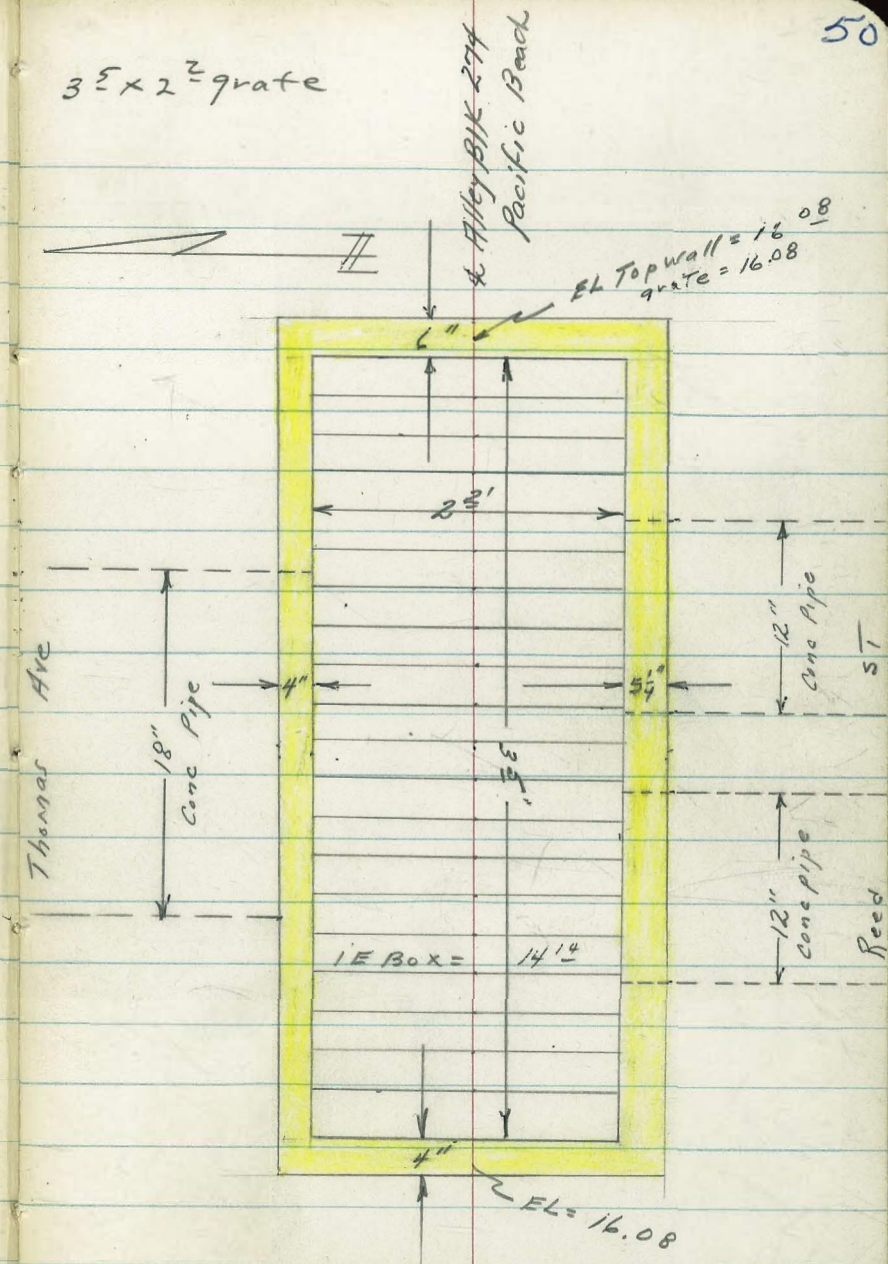 50
3 5 x 2 2 grate
℄ Alley Blk 274
Pacific Beach
EL Top wall = 16 08
grate = 16.08
6"
2 2'
12"
Conc Pipe
ST
Thomas Ave
18"
Conc Pipe
4"
5 1/4"
3 5'
12"
Conc pipe
Reed
IE Box = 14 14
4"
EL = 16.08